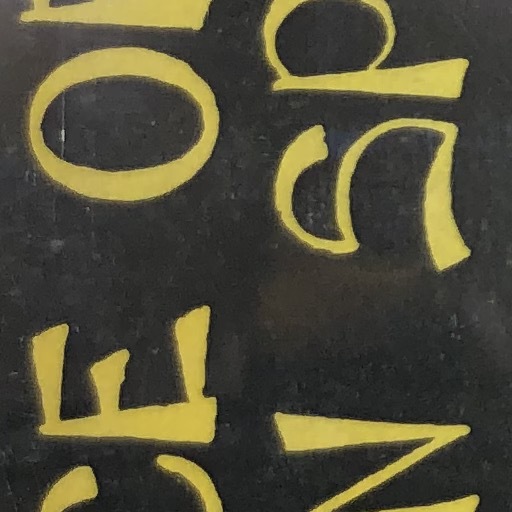 CE O
N SP